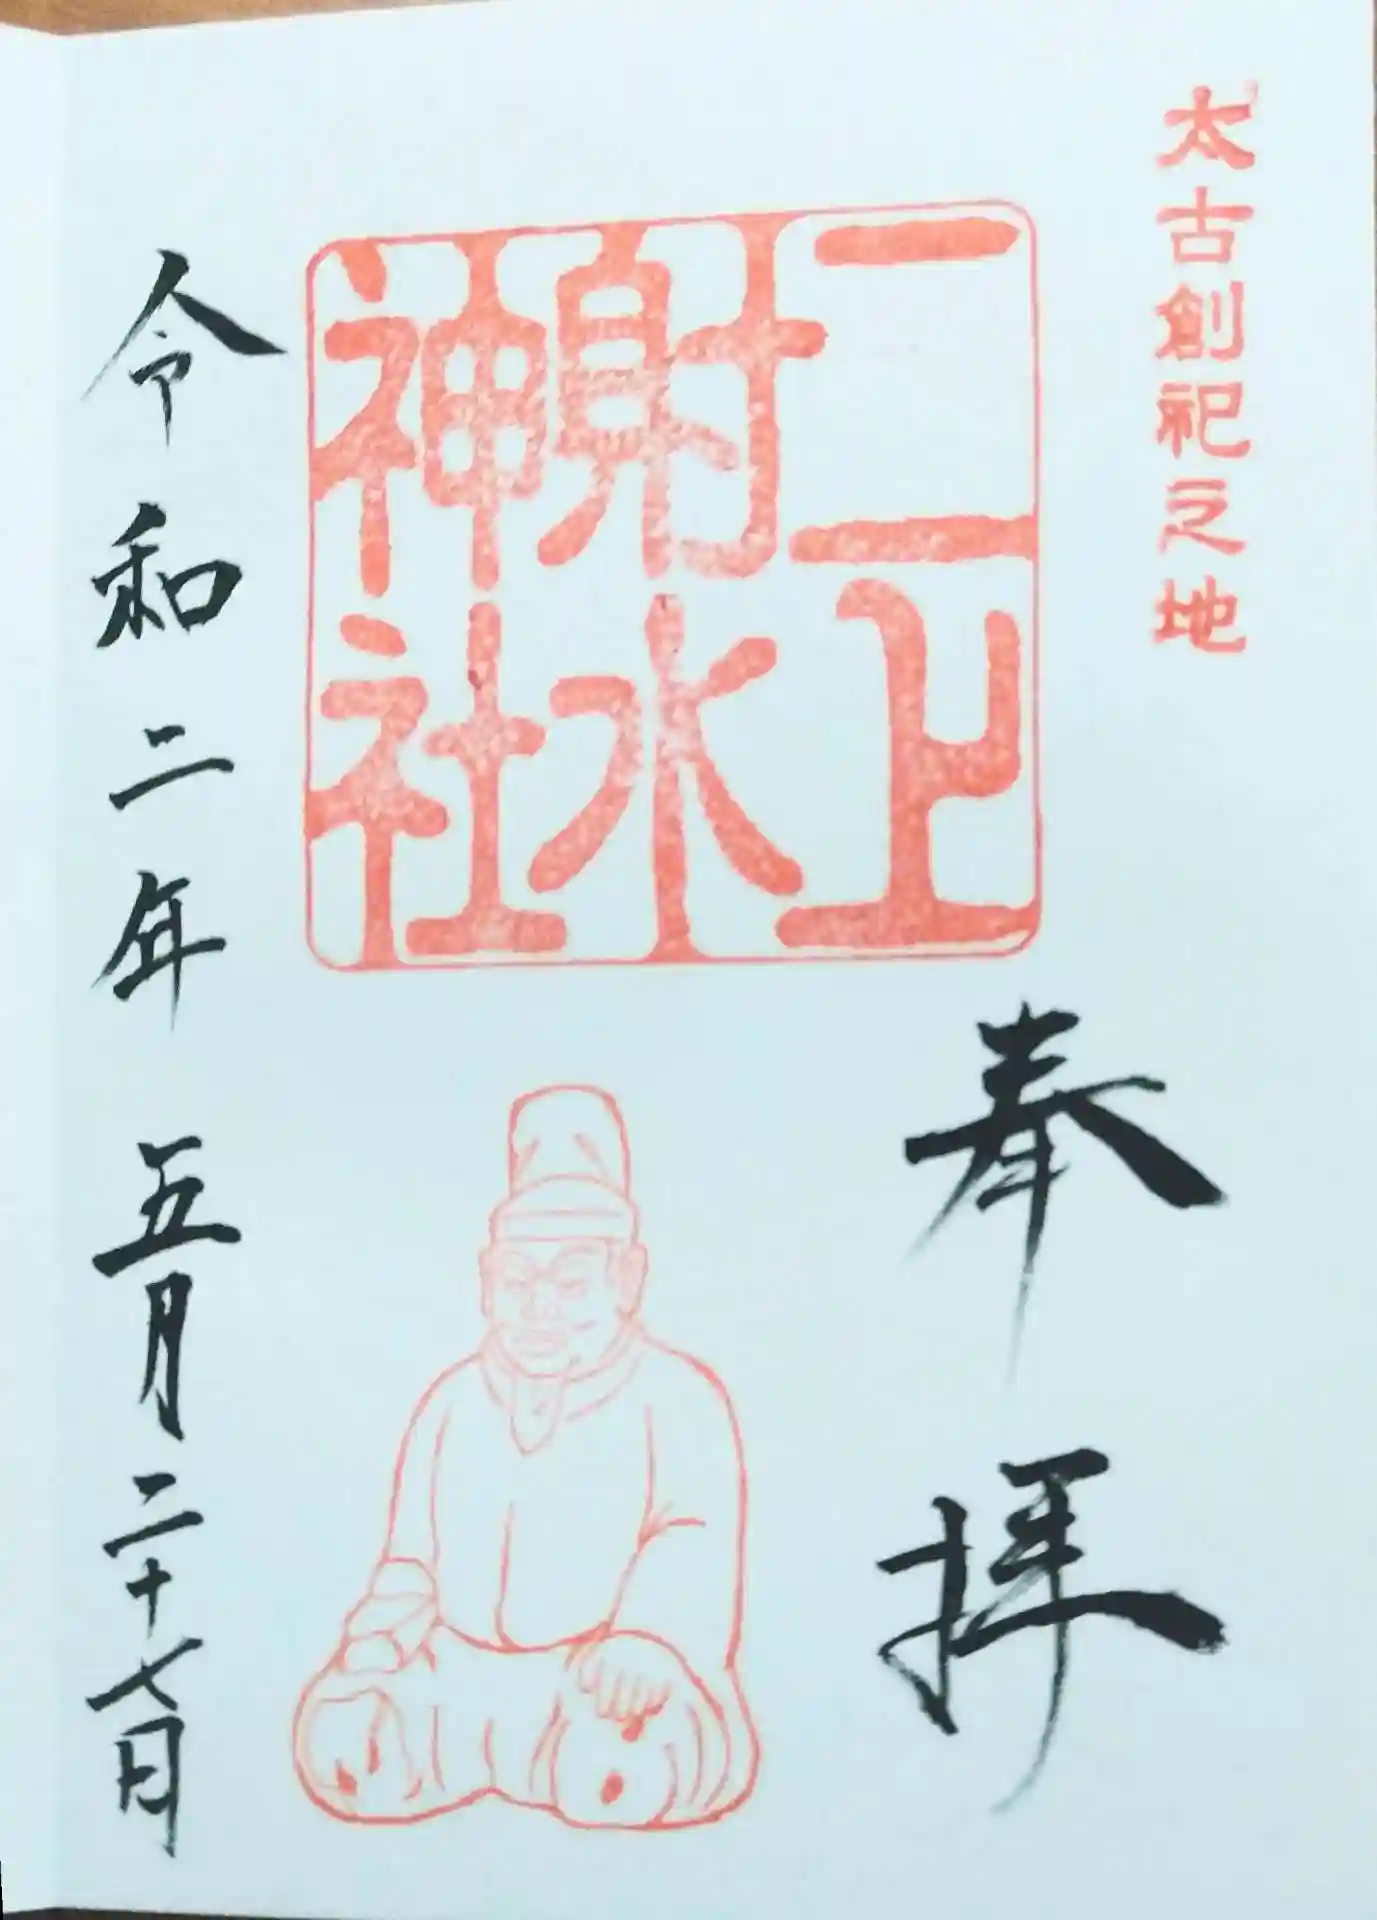 太古創祀之地
奉拝
二上
射水
神社
令和二年五月二十七日